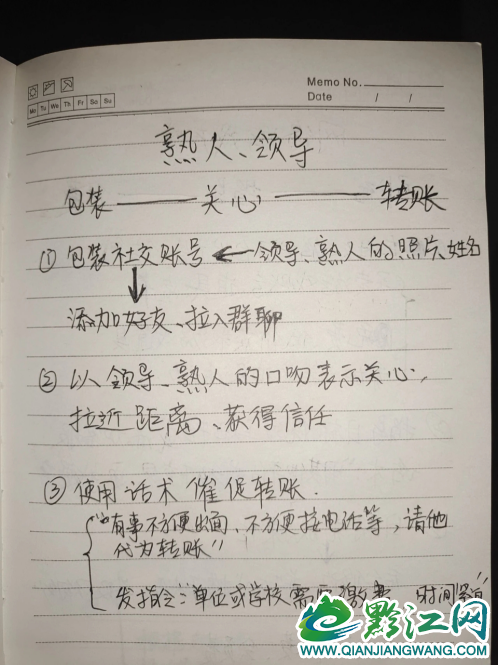 Memo No.
Mo Tu We Th Fr Sa Su
Date / /
熟人、领导
包装 —— 关心 —— 转账
① 包装社交账号 ← 领导、熟人的照片、姓名
↓
添加好友、拉入群聊
② 以领导、熟人的口吻表示关心,
拉近距离、获得信任
③ 使用话术催促转账.
"有事不方便出面、不方便接电话等,请他
代为转账"
发指令:单位或学校需要缴费 时间紧迫
黔江网
WWW.QIANJIANGWANG.COM